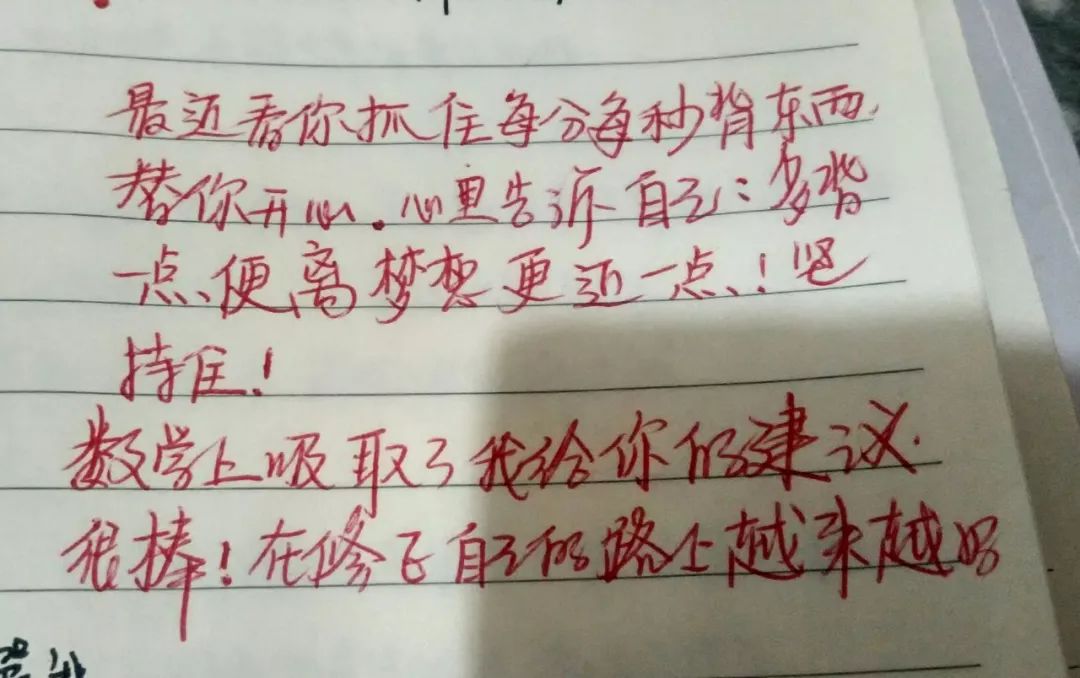 最近看你抓住每分每秒背东西,
替你开心.心里告诉自己:多背
一点便离梦想更近一点!坚
持住!
数学上吸取了我给你的建议.
很棒!在修正自己的路上越来越好